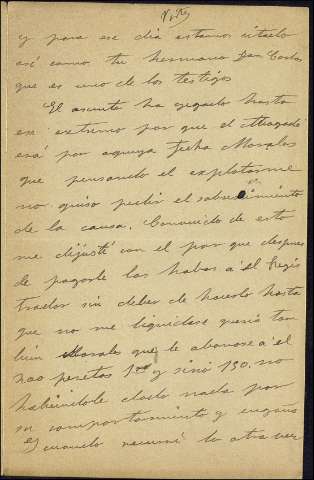 y para ese dia estamos citado
asi como tu hermano Don Carlos
que es uno de los testigos
El asunto ha yegado hasta
ese extremo por que el Abogado
era por aqueya fecha Morales
que pensando el explotarme
no quiso pedir el
de la causa. Convencido de esto
me dijusté con el por que despues
de pagarle las habas a el Regis
trador sin deber de hacerlo hasta
que no me liquidase queria tam
bien Morales que le abonase a el
pesetas y sinó 150. no
habiendole dado nada por
su comportamiento y engaño
es cuando renuncié la otra vez